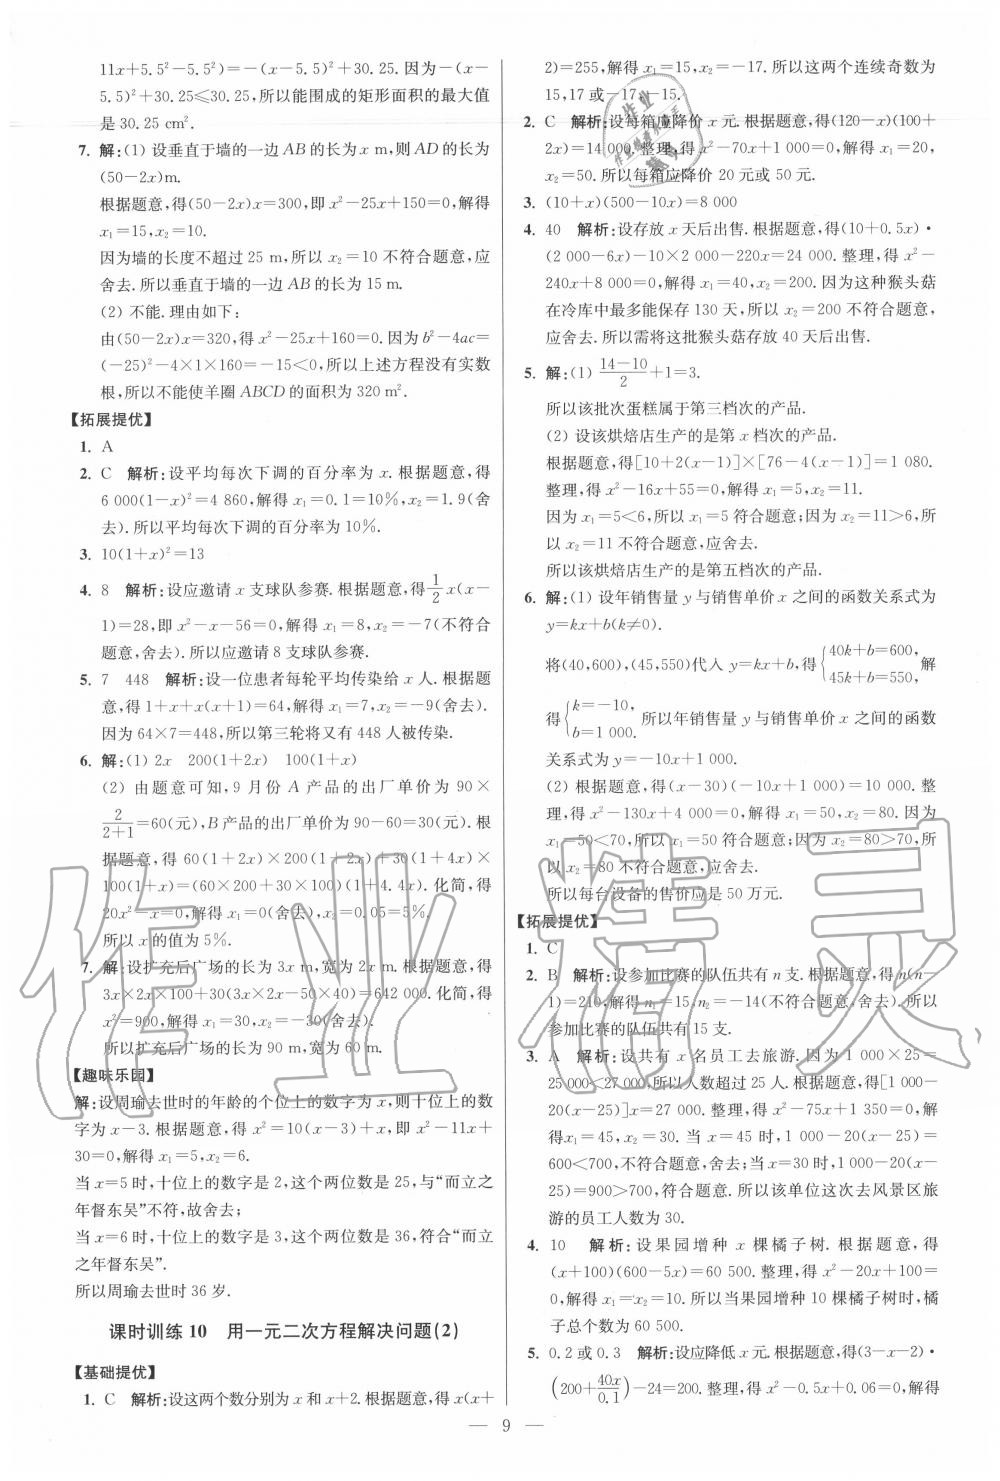 11x+5.5²-5.5²)=-(x-5.5)²+30.25. 因为-(x-
5.5)²+30.25≤30.25,所以能围成的矩形面积的最大值
是 30.25 cm².
7. 解:(1) 设垂直于墙的一边 AB 的长为 x m,则 AD 的长为
(50-2x)m.
根据题意,得(50-2x)x=300,即 x²-25x+150=0,解得
x₁=15,x₂=10.
因为墙的长度不超过 25 m,所以 x₂=10 不符合题意,应
舍去.所以垂直于墙的一边 AB 的长为 15 m.
(2) 不能.理由如下:
由(50-2x)x=320,得 x²-25x+160=0.因为 b²-4ac=
(-25)²-4×1×160=-15<0,所以上述方程没有实数
根,所以不能使羊圈 ABCD 的面积为 320 m².
【拓展提优】
1. A
2. C 解析:设平均每次下调的百分率为 x.根据题意,得
6 000(1-x)²=4 860,解得 x₁=0.1=10%,x₂=1.9(舍
去).所以平均每次下调的百分率为 10%.
3. 10(1+x)²=13
4. 8 解析:设应邀请 x 支球队参赛.根据题意,得 1/2 x(x-
1)=28,即 x²-x-56=0,解得 x₁=8,x₂=-7(不符合
题意,舍去).所以应邀请 8 支球队参赛.
5. 7 448 解析:设一位患者每轮平均传染给 x 人.根据题
意,得 1+x+x(x+1)=64,解得 x₁=7,x₂=-9(舍去).
因为 64×7=448,所以第三轮将又有 448 人被传染.
6. 解:(1) 2x 200(1+2x) 100(1+x)
(2) 由题意可知,9 月份 A 产品的出厂单价为 90×
2/(2+1)=60(元),B 产品的出厂单价为 90-60=30(元).根
据题意,得 60(1+2x)×200(1+2x)+30(1+4x)×
100(1+x)=(60×200+30×100)(1+4.4x).化简,得
20x²-x=0,解得 x₁=0(舍去),x₂=0.05=5%.
所以 x 的值为 5%.
7. 解:设扩充后广场的长为 3x m,宽为 2x m.根据题意,得
3x×2x×100+30(3x×2x-50×40)=642 000.化简,得
x²=900,解得 x₁=30,x₂=-30(舍去).
所以扩充后广场的长为 90 m,宽为 60 m.
【趣味乐园】
解:设周瑜去世时的年龄的个位上的数字为 x,则十位上的数
字为 x-3.根据题意,得 x²=10(x-3)+x,即 x²-11x+
30=0.解得 x₁=5,x₂=6.
当 x=5 时,十位上的数字是 2,这个两位数是 25,与“而立之
年督东吴”不符,故舍去;
当 x=6 时,十位上的数字是 3,这个两位数是 36,符合“而立
之年督东吴”.
所以周瑜去世时 36 岁.
课时训练 10 用一元二次方程解决问题(2)
【基础提优】
1. C 解析:设这两个数分别为 x 和 x+2.根据题意,得 x(x+
2)=255,解得 x₁=15,x₂=-17.所以这两个连续奇数为
15,17 或-17,-15.
2. C 解析:设每箱应降价 x 元.根据题意,得(120-x)(100+
2x)=14 000.整理,得 x²-70x+1 000=0,解得 x₁=20,
x₂=50.所以每箱应降价 20 元或 50 元.
3. (10+x)(500-10x)=8 000
4. 40 解析:设存放 x 天后出售.根据题意,得(10+0.5x)·
(2 000-6x)-10×2 000-220x=24 000.整理,得 x²-
240x+8 000=0,解得 x₁=40,x₂=200.因为这种猴头菇
在冷库中最多能保存 130 天,所以 x₂=200 不符合题意,
应舍去.所以需将这批猴头菇存放 40 天后出售.
5. 解:(1) (14-10)/2+1=3.
所以该批次蛋糕属于第三档次的产品.
(2) 设该烘焙店生产的是第 x 档次的产品.
根据题意,得[10+2(x-1)]×[76-4(x-1)]=1 080.
整理,得 x²-16x+55=0,解得 x₁=5,x₂=11.
因为 x₁=5<6,所以 x₁=5 符合题意;因为 x₂=11>6,所
以 x₂=11 不符合题意,应舍去.
所以该烘焙店生产的是第五档次的产品.
6. 解:(1) 设年销售量 y 与销售单价 x 之间的函数关系式为
y=kx+b(k≠0).
将(40,600),(45,550)代入 y=kx+b,得{40k+b=600, 45k+b=550, 解
得{k=-10, b=1 000. 所以年销售量 y 与销售单价 x 之间的函数
关系式为 y=-10x+1 000.
(2) 根据题意,得(x-30)(-10x+1 000)=10 000.整
理,得 x²-130x+4 000=0,解得 x₁=50,x₂=80.因为
x₁=50<70,所以 x₁=50 符合题意;因为 x₂=80>70,所
以 x₂=80 不符合题意,应舍去.
所以每台设备的售价应是 50 万元.
【拓展提优】
1. C
2. B 解析:设参加比赛的队伍共有 n 支.根据题意,得 n(n-
1)=210,解得 n₁=15,n₂=-14(不符合题意,舍去).所以
参加比赛的队伍共有 15 支.
3. A 解析:设共有 x 名员工去旅游.因为 1 000×25=
25 000<27 000,所以人数超过 25 人.根据题意,得[1 000-
20(x-25)]x=27 000.整理,得 x²-75x+1 350=0,解
得x₁=45,x₂=30.当 x=45 时,1 000-20(x-25)=
600<700,不符合题意,舍去;当 x=30 时,1 000-20(x-
25)=900>700,符合题意.所以该单位这次去风景区旅
游的员工人数为 30.
4. 10 解析:设果园增种 x 棵橘子树.根据题意,得
(x+100)(600-5x)=60 500.整理,得 x²-20x+100=
0,解得 x₁=x₂=10.所以当果园增种 10 棵橘子树时,橘
子总个数为 60 500.
5. 0.2 或 0.3 解析:设应降低 x 元.根据题意,得(3-x-2)·
(200+40x/0.1)-24=200.整理,得 x²-0.5x+0.06=0,解得
— 9 —
作业精灵